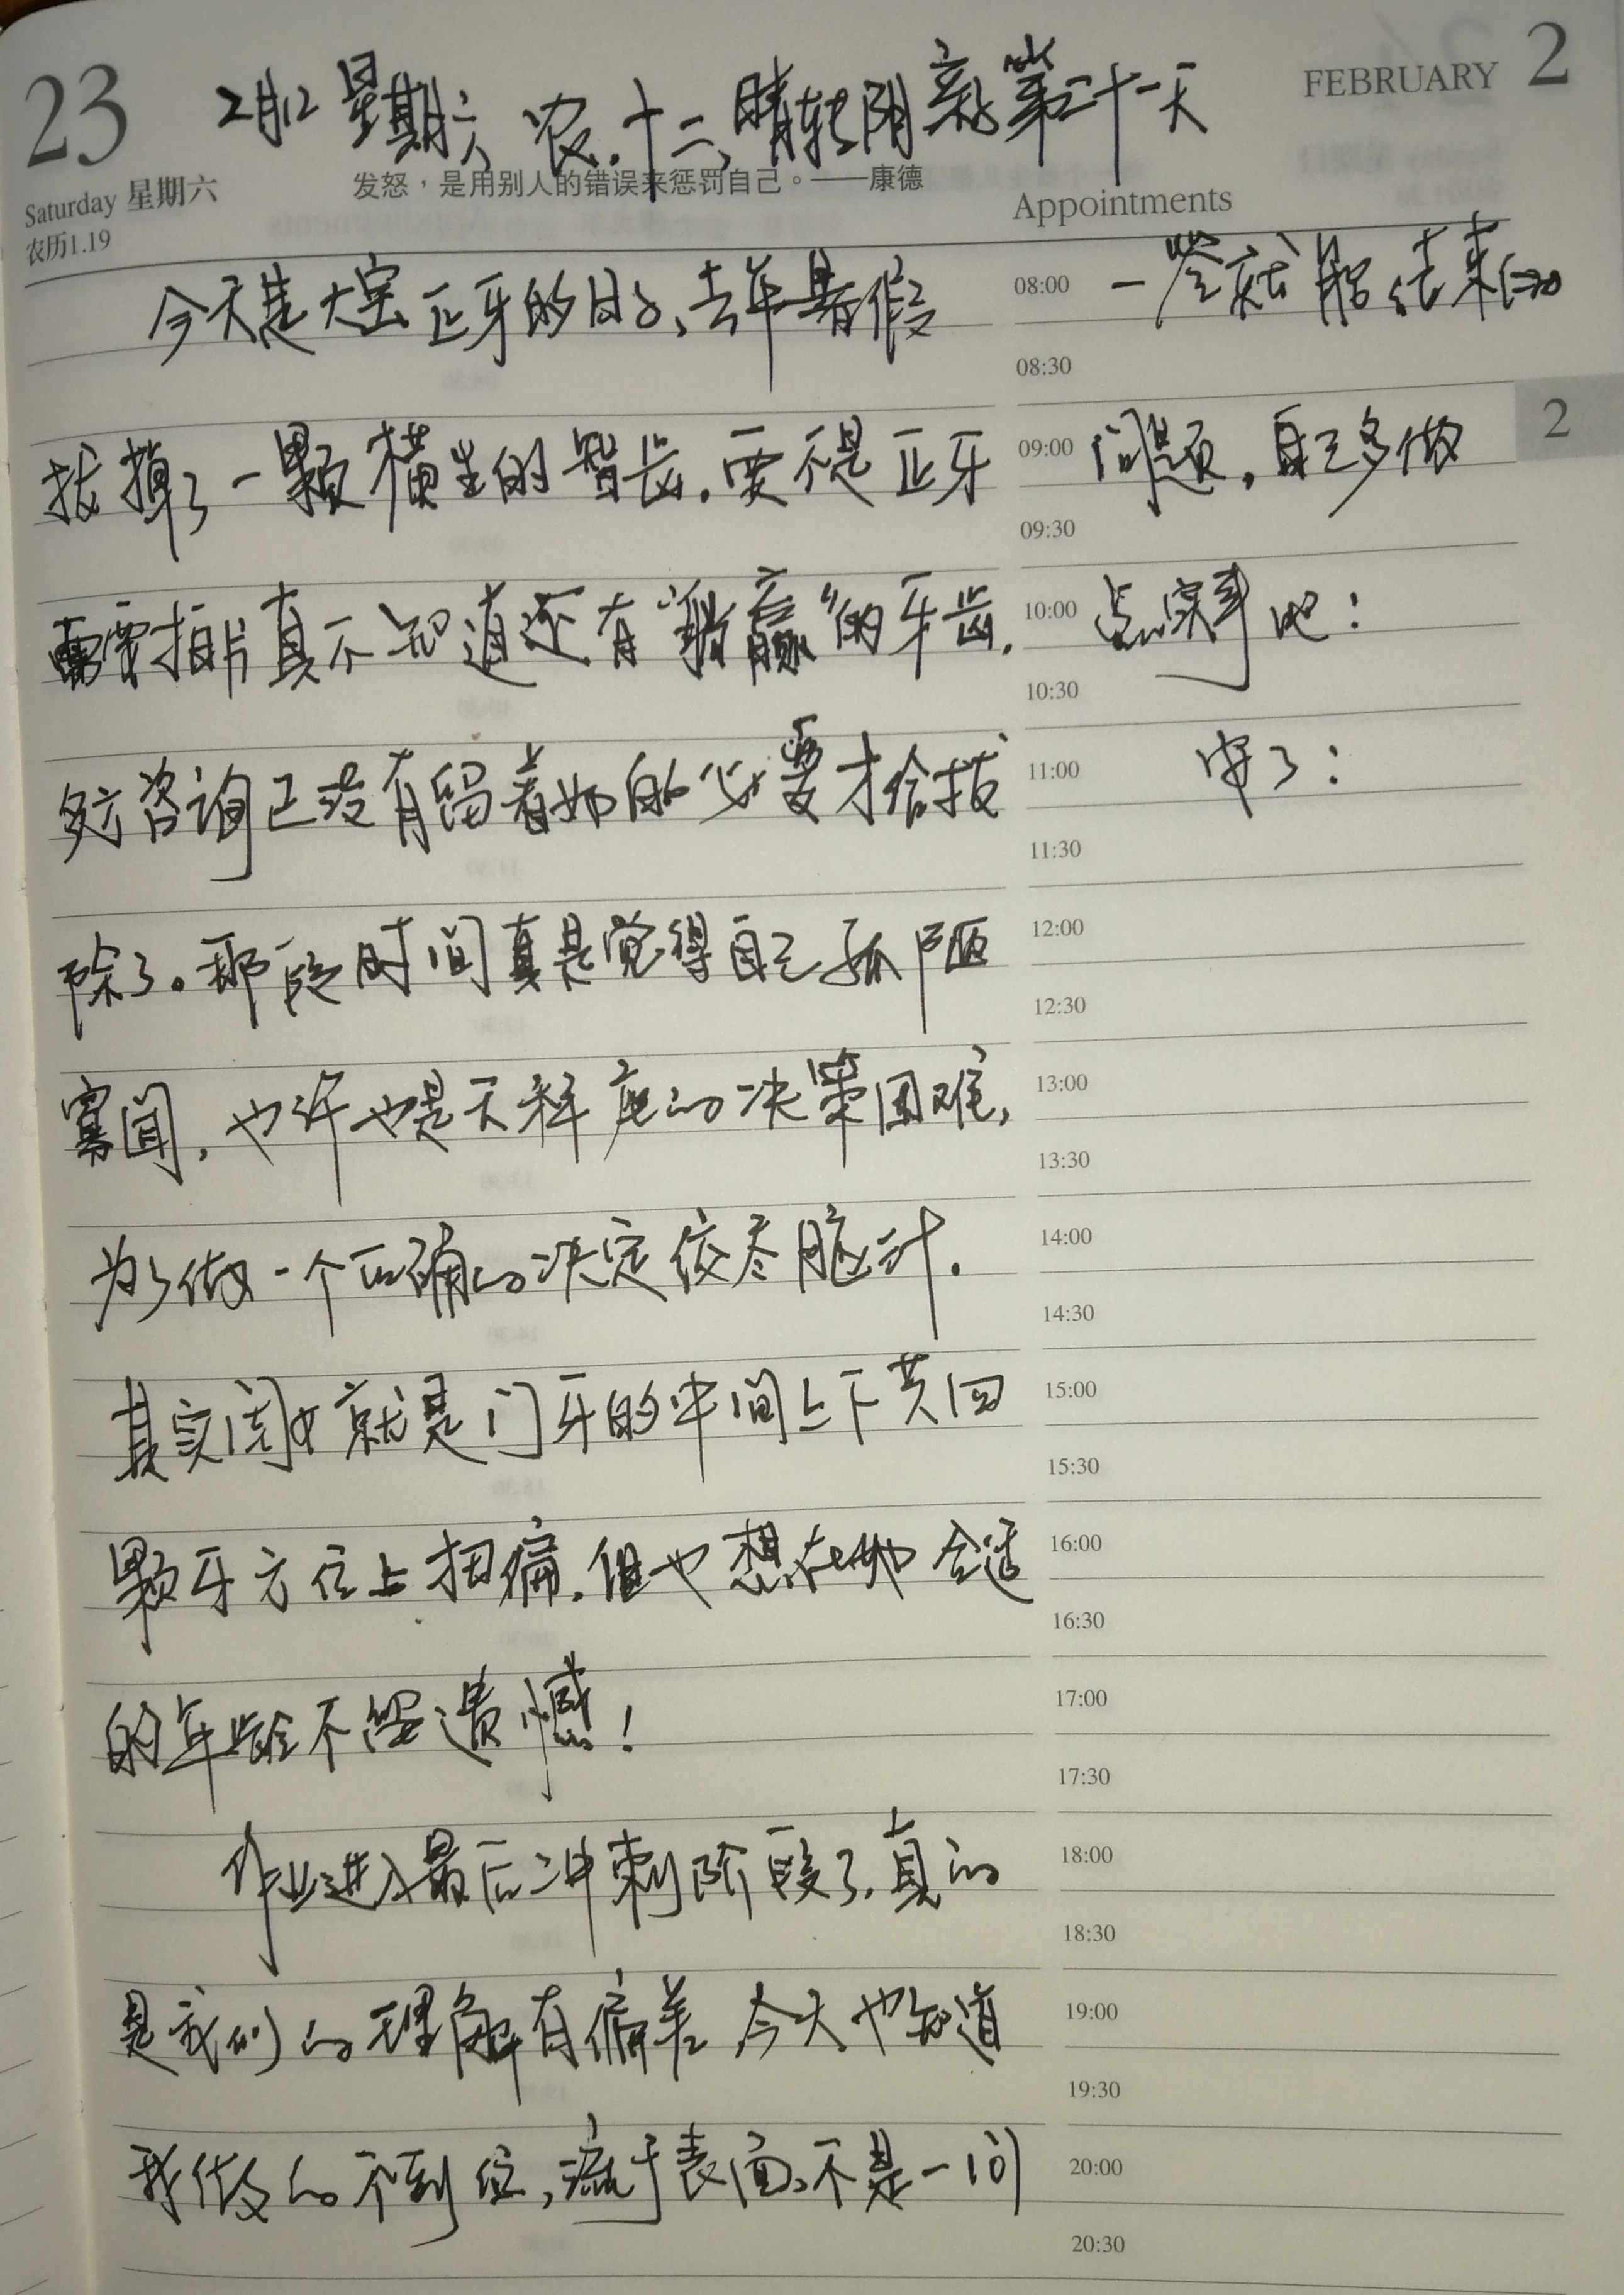 23
2月12 星期六,农.十二,晴转阴 亲 第二十一天
FEBRUARY 2
Saturday 星期六
农历1.19
发怒,是用别人的错误来惩罚自己。——康德
Appointments
今天是大宝正牙的日子,去年暑假
拔掉了一颗横生的智齿.要不是正牙
需要拍片真不知道还有“躺赢”的牙齿.
多方咨询已没有留着她的必要才给拔
除了。那段时间真是觉得自己孤陋
寡闻,也许也是天秤座的决策困难,
为了做一个正确的决定绞尽脑汁.
其实闺女就是门牙的中间上下共四
颗牙方位上扭偏.但也想在她合适
的年龄不留遗憾!
作业进入最后冲刺阶段了.真的
是我们的理解有偏差 今天也知道
我做的不到位,流于表面.不是一问
08:00 一答就能结束的
08:30
09:00 问题,自己多做
09:30
10:00 点实事吧!
10:30
11:00 安了!
11:30
12:00
12:30
13:00
13:30
14:00
14:30
15:00
15:30
16:00
16:30
17:00
17:30
18:00
18:30
19:00
19:30
20:00
20:30
2